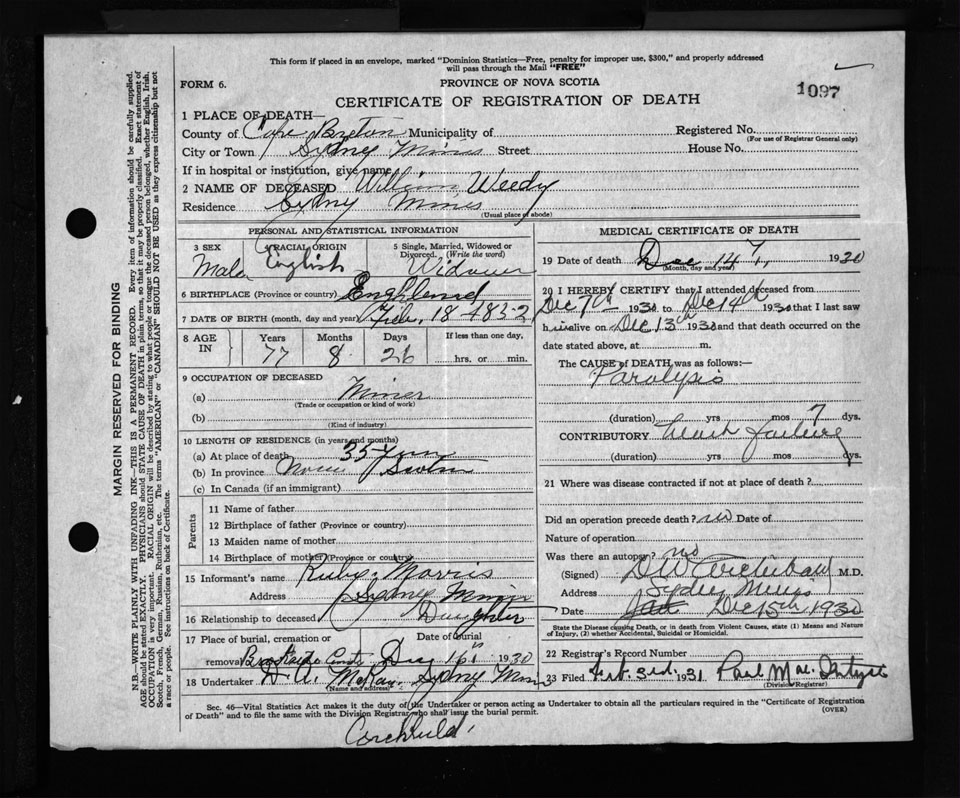 This form if placed in an envelope, marked "Dominion Statistics—Free, penalty for improper use, $300," and properly addressed
will pass through the Mail "FREE"
FORM 6.
PROVINCE OF NOVA SCOTIA
1097
CERTIFICATE OF REGISTRATION OF DEATH
1 PLACE OF DEATH—
County of Cape Breton Municipality of
Registered No.
(For use of Registrar General only)
City or Town Sydney Mines Street House No.
If in hospital or institution, give name
2 NAME OF DECEASED William Weedy
Residence Sydney Mines
(Usual place of abode)
PERSONAL AND STATISTICAL INFORMATION
3 SEX Male
RACIAL ORIGIN English
5 Single, Married, Widowed or
Divorced. (Write the word)
Widower
6 BIRTHPLACE (Province or country)
7 DATE OF BIRTH (month, day and year) 18
8 AGE IN
Years 77
Months 8
Days 26
If less than one day,
hrs. or min.
9 OCCUPATION OF DECEASED
(a) Miner
(Trade or occupation or kind of work)
(b)
(Kind of industry)
10 LENGTH OF RESIDENCE (in years and months)
(a) At place of death 35
(b) In province Nova Scotia
(c) In Canada (if an immigrant)
Parents
11 Name of father
12 Birthplace of father (Province or country)
13 Maiden name of mother
14 Birthplace of mother (Province or country)
15 Informant's name Morris
Address Sydney Mines
16 Relationship to deceased Daughter
17 Place of burial, cremation or
removal
Date of Burial
16 1930
18 Undertaker Sydney Mines
(Name and address)
MEDICAL CERTIFICATE OF DEATH
19 Date of death Dec 14 1930
(Month, day and year)
20 I HEREBY CERTIFY that I attended deceased from
Dec 7th 1930 to Dec 14th 1930 that I last saw
h alive on Dec 13th 1930 and that death occurred on
date stated above, at m.
The CAUSE of DEATH was as follows:—
Paralysis
(duration) yrs mos 7 dys.
CONTRIBUTORY Heart failure
(duration) yrs mos dys.
21 Where was disease contracted if not at place of death?
Did an operation precede death? no Date of
Nature of operation
Was there an autopsy? no
(Signed) D W Archibald M.D.
Address Sydney Mines
Date Dec 15th 1930
State the Disease causing Death, or in death from Violent Causes, state (1) Means and Nature
of Injury, (2) whether Accidental, Suicidal or Homicidal.
22 Registrar's Record Number
23 Filed 3rd 1931 Paul
(Division Registrar)
Sec. 46—Vital Statistics Act makes it the duty of the Undertaker or person acting as Undertaker to obtain all the particulars required in the "Certificate of Registration
of Death" and to file the same with the Division Registrar who shall issue the burial permit.
(OVER)
MARGIN RESERVED FOR BINDING
N.B.—WRITE PLAINLY WITH UNFADING INK—THIS IS A PERMANENT RECORD. Every item of information should be carefully supplied.
AGE should be stated EXACTLY. PHYSICIANS should STATE CAUSE OF DEATH in plain terms, so that it may be properly classified. Exact statement of
OCCUPATION is very important. RACIAL ORIGIN will be described by stating to what people or tongue the deceased person belonged, whether English, Irish,
Scotch, French, German, Russian, Ruthenian, etc. The terms "AMERICAN" or "CANADIAN" SHOULD NOT BE USED as they express citizenship but not
a race or people. See instructions on back of Certificate.